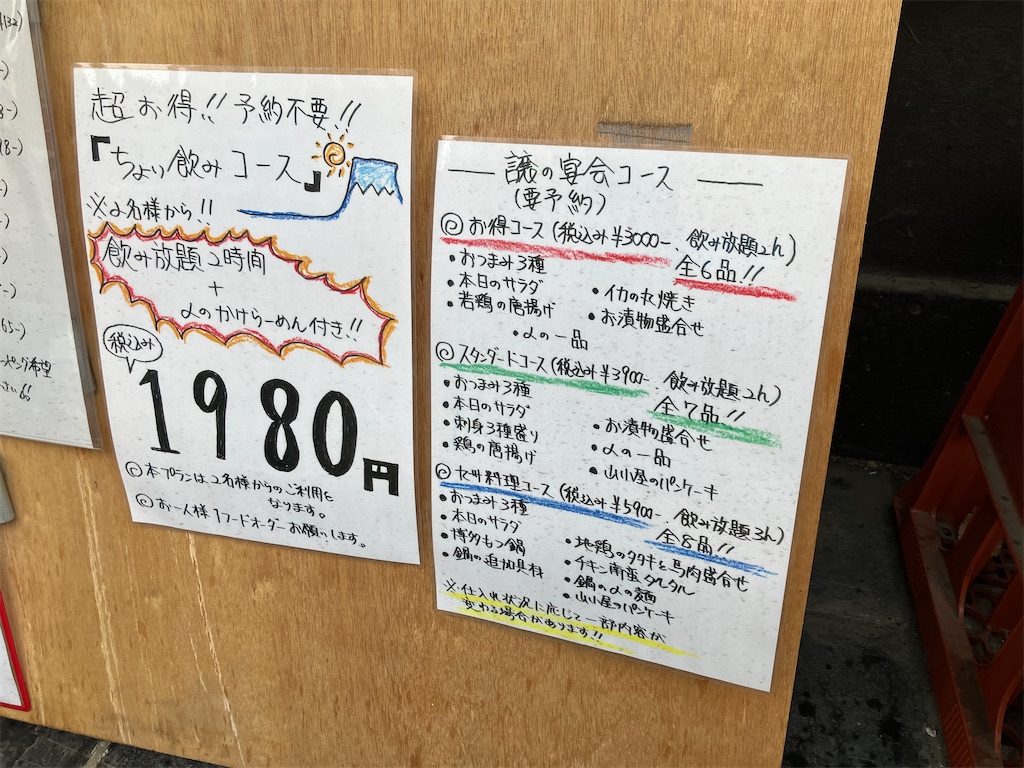 132)
-)
8-)
8-)
-)
-)
-)
-)
65-)
超お得!!予約不要!!
『ちょい飲みコース』
※2名様から!!
飲み放題2時間
+
〆のかけらーめん付き!!
税込み
1980円
◎本プランは2名様からのご利用と
なります。
◎お一人様1フードオーダーお願いします。
譲の宴会コース
(要予約)
◎お得コース(税込み¥3000-、飲み放題2h)
全6品!!
・おつまみ3種
・本日のサラダ
・若鶏の唐揚げ
・イカの丸焼き
・お漬物盛合せ
・〆の一品
◎スタンダードコース(税込み¥3900- 飲み放題2h)
全7品!!
・おつまみ3種
・本日のサラダ
・刺身3種盛り
・鶏の唐揚げ
・お漬物盛合せ
・〆の一品
・山小屋のパンケーキ
◎九州料理コース(税込み¥5900- 飲み放題3h)
全8品!!
・おつまみ3種
・本日のサラダ
・博多もつ鍋
・鍋の追加具材
・地鶏のタタキと馬肉盛合せ
・チキン南蛮タルタル
・鍋の〆の麺
・山小屋のパンケーキ
※仕入れ状況に応じて一部内容が
変わる場合があります!!